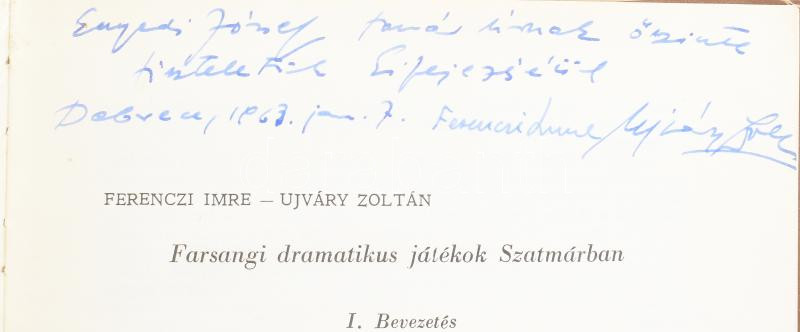 Enyedi József tanár úrnak őszinte
tiszteletük kifejezéséül
Debrecen, 1963. jan. 7. Ferenczi Imre Ujváry Zoltán
FERENCZI IMRE — UJVÁRY ZOLTÁN
Farsangi dramatikus játékok Szatmárban
I. Bevezetés